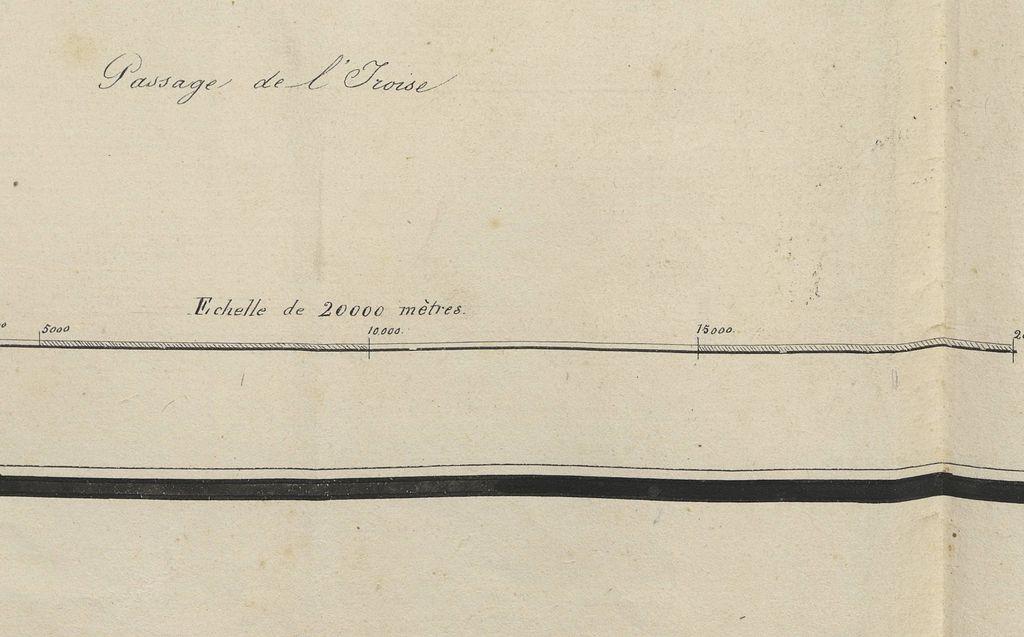 Passage de l'Iroise
Echelle de 20000 mètres.
5000 10,000. 15000.